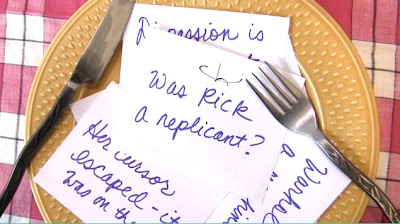 is
Was Rick
a replicant?
Her cursor
escaped - it
was on the